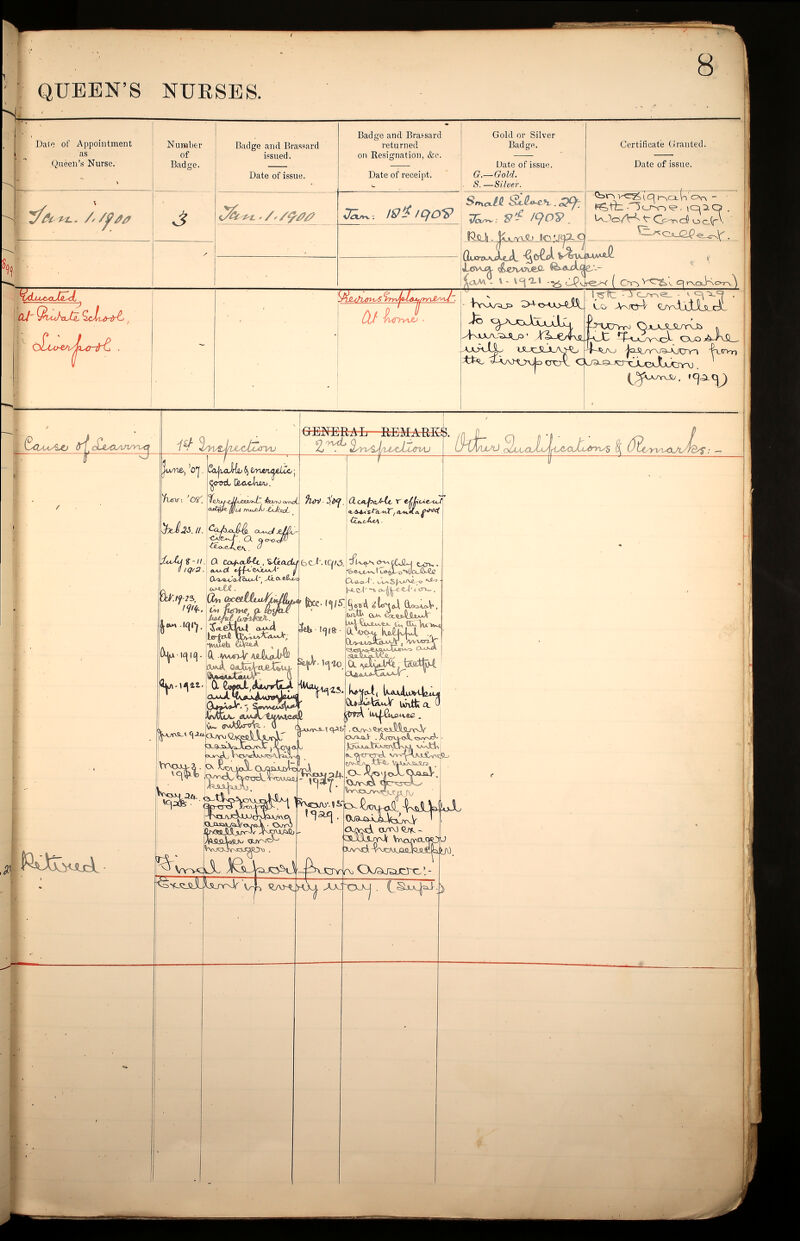 8
QUEEN'S NURSES.
Date of Appointment as Queen's Nurse.
Number of Badge.
Badge and Brassard issued.
Date of issue.
Badge and Brassard returned on Resignation, &c.
Date of receipt.
Gold or Silver Badge.
Date of issue.
G.—Gold.
S.—Silver.
Certificate Granted.
Date of issue.
Jan. 1. 1900
3
Jan. 1. 1900
Jan: 18th 1908
Small Silver.
Jan: 8th 1908.
Ret. June 10: 1929
Awarded Gold & Enamel
Long Service Badge:-
Jan. 1. 1921
(on resignation)
On resignation -
June. 1929.
Work & Conduct
Excellent.
Educated
at Private School,
Liverpool.
Previous Employment:
At home.
Miss Howell is not entitled
to gratuity from Queen's
Nurses' Benefit Fund as she
will receive her pension from
the Liverpool Association.
(June, 1929)
GENERAL REMARKS.
Cause of Leaving
1st Inspection
2nd Inspection
Other Qualifications & Remarks: -
June, '07. Capable & energetic;
good teacher.
Nov: '08.
much liked.
Nov. '09. A capable & efficient
assistant, and a good
teacher.
Feb 23. 11. Capable and effi-
cient. A good
teacher.
July 8 - 11 / 1912. A capable, steady
and efficient
assistant, teaches
well.
Oct. 1913.
Oct. 19-23, 1914. An excellent influence
in home, a loyal
useful worker.
Dec. 1915. Good & loyal Assist.,
with an excellent
influence in the home
Jan. 1917. Tactful and
loyal Assistant,
much liked
Feb. 1918. A very helpful
Assistant, most
conscientious and
reliable.
Apr. 1919. A most reliable
and satisfactory
Assistant
Sept. 1920. A reliable, tactful
Assistant.
Apr. 1922. A loyal, devoted
and hardworking
Assist.; somewhat
bitter and cynical
in outlook.
May 1923. Loyal, hardworking
Assistant with a
good influence.
June. 1924 An excellent
assistant, loyal
and hardworking
June. 1925. An excellent
asst. Loyal and
trustworthy with
a good influence
over the nurses.
May 3. 1926 A loyal assistant
and good house-
keeper.
May 24. 1927. A loyal Asst.
and good
manager
May 24. 1928. a thoroughly
good loyal
hardworking
assistant. An
excellent house-
keeper and
manager.
Mar. 15 1929. A loyal helpful
assistant
and an ex-
cellent manager
and housekeeper.
Retired.
Final Report from Assoc:-
Excellent in every way. (Supt.)